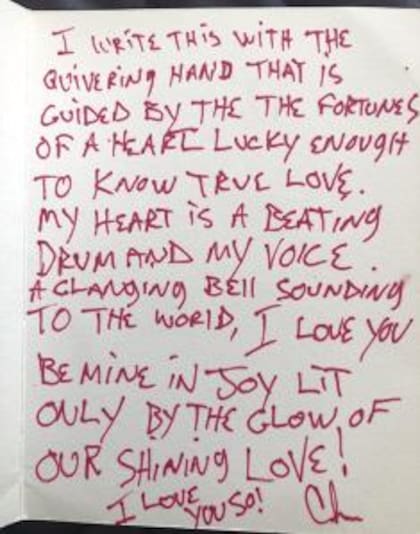 I WRITE THIS WITH THE
QUIVERING HAND THAT IS
GUIDED BY THE THE FORTUNES
OF A HEART LUCKY ENOUGH
TO KNOW TRUE LOVE.
MY HEART IS A BEATING
DRUM AND MY VOICE.
A CLANGING BELL SOUNDING
TO THE WORLD, I LOVE YOU
BE MINE IN JOY LIT
ONLY BY THE GLOW OF
OUR SHINING LOVE!
I LOVE YOU SO!